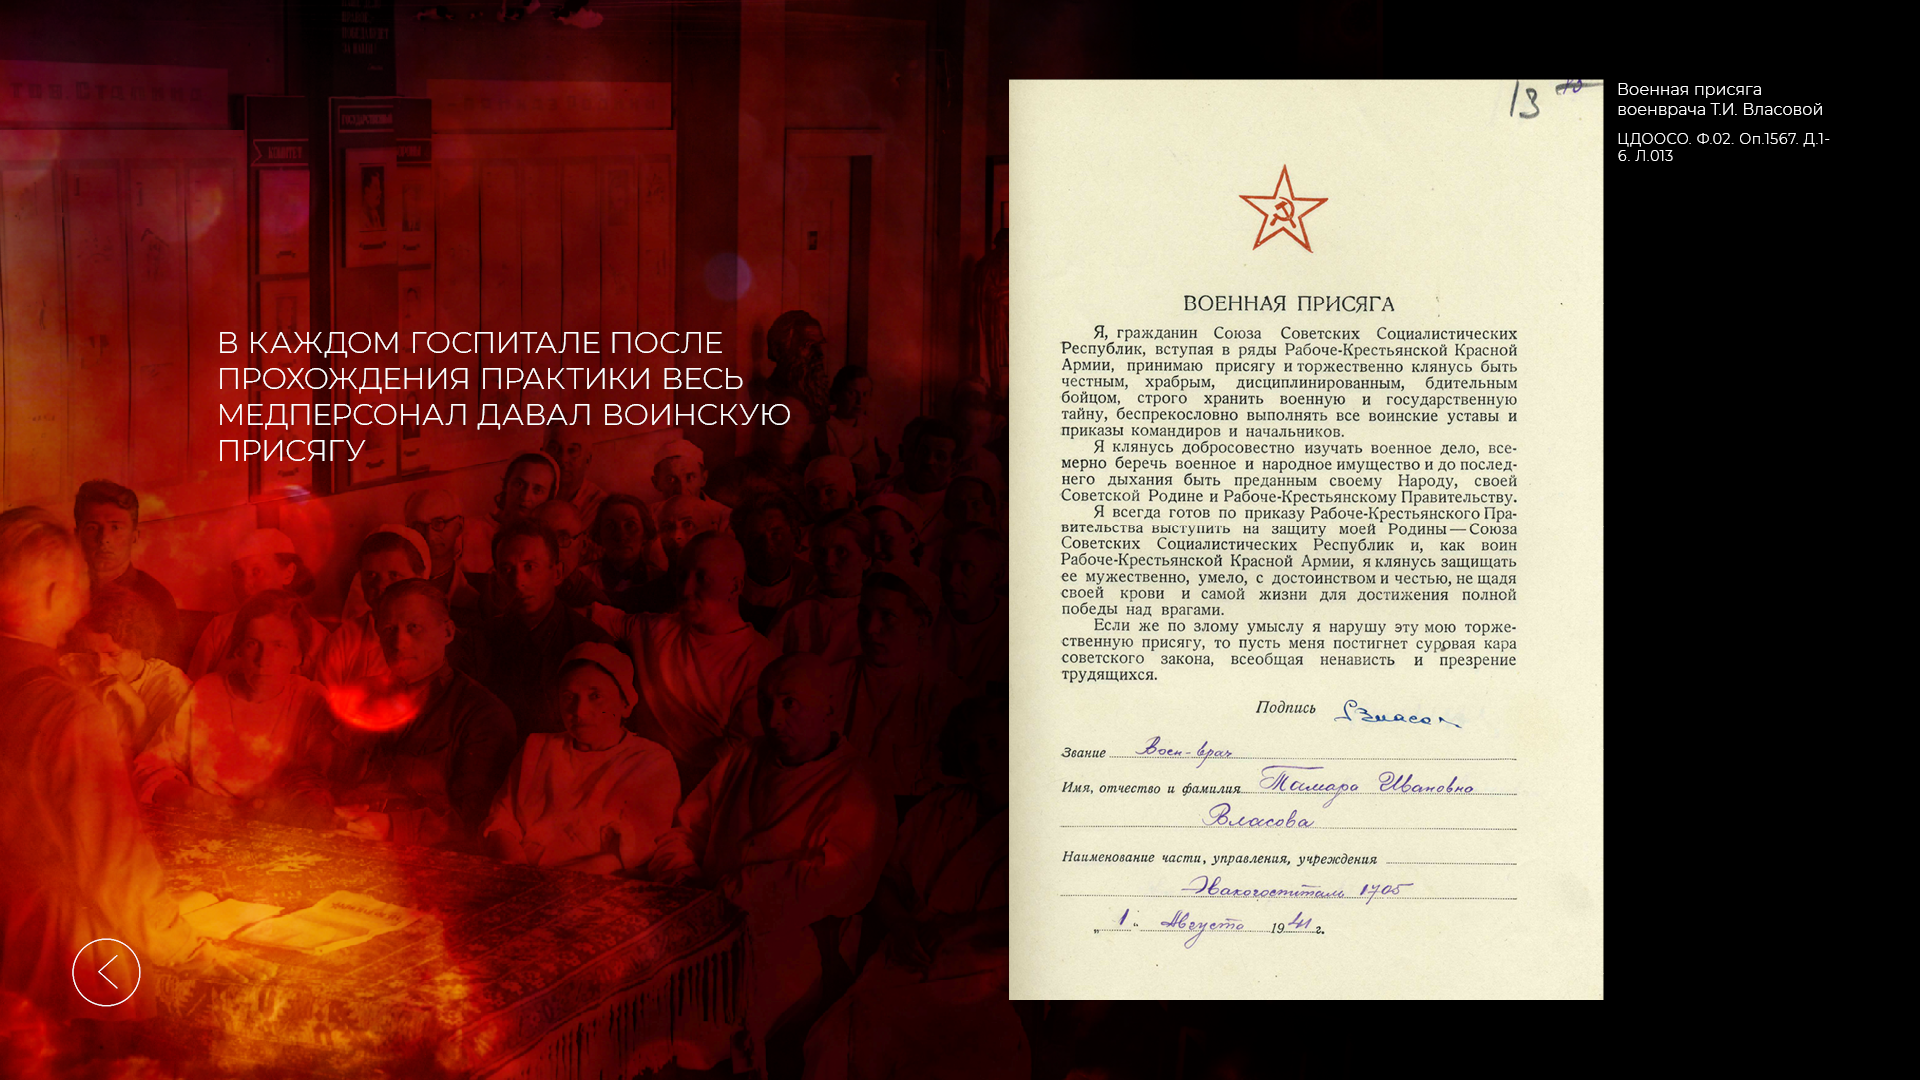 В КАЖДОМ ГОСПИТАЛЕ ПОСЛЕ
ПРОХОЖДЕНИЯ ПРАКТИКИ ВЕСЬ
МЕДПЕРСОНАЛ ДАВАЛ ВОИНСКУЮ
ПРИСЯГУ
КОМИТЕТ
13
ВОЕННАЯ ПРИСЯГА
Я, гражданин Союза Советских Социалистических
Республик, вступая в ряды Рабоче-Крестьянской Красной
Армии, принимаю присягу и торжественно клянусь быть
честным, храбрым, дисциплинированным, бдительным
бойцом, строго хранить военную и государственную
тайну, беспрекословно выполнять все воинские уставы и
приказы командиров и начальников.
Я клянусь добросовестно изучать военное дело, все-
мерно беречь военное и народное имущество и до послед-
него дыхания быть преданным своему Народу, своей
Советской Родине и Рабоче-Крестьянскому Правительству.
Я всегда готов по приказу Рабоче-Крестьянского Пра-
вительства выступить на защиту моей Родины — Союза
Советских Социалистических Республик и, как воин
Рабоче-Крестьянской Красной Армии, я клянусь защищать
ее мужественно, умело, с достоинством и честью, не щадя
своей крови и самой жизни для достижения полной
победы над врагами.
Если же по злому умыслу я нарушу эту мою торже-
ственную присягу, то пусть меня постигнет суровая кара
советского закона, всеобщая ненависть и презрение
трудящихся.
Подпись
Звание Воен-врач
Имя, отчество и фамилия Тамара Ивановна
Власова
Наименование части, управления, учреждения
Эвакогоспиталь 1705
„1“ Августа 1941 г.
Военная присяга
военврача Т.И. Власовой
ЦДООСО. Ф.02. Оп.1567. Д.1-
6. Л.013